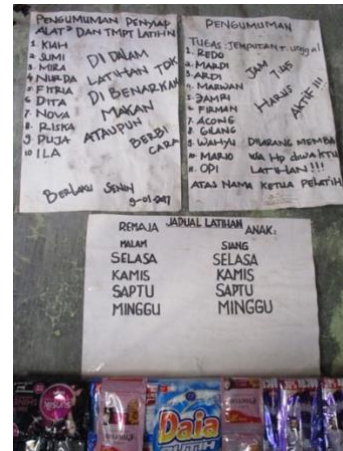 PENGUMUMAN PENYIAP
ALAT² DAN TMPT LATIHN
1. KIAH
2. SUMI
3. MIRA
4. NURDA
5. FITRIA
6. DITA
7. NOVA
8. RISKA
9. PUJA
10 ILA
DI DALAM
LATIHAN TDK
DI BENARKAN
MAKAN
ATAUPUN
BERBI
CARA
BERLAKU SENIN
9-01-
PENGUMUMAN
TUGAS JEMPUTAN
1. REDO
2. MARDI
3. ARDI
4. MARWAN
5. JAMRI
6. FIRMAN
7. ACONG
8. GILANG
9. WAHYU
10. MARIO
11. OPI
JAM 7.45
HARUS
AKTIF !!!
DILARANG MEMBA
WA HP DIWAKTU
LATIHAN!!!
ATAS NAMA KETUA PELATIH
JADUAL LATIHAN
REMAJA ANAK:
MALAM SIANG
SELASA SELASA
KAMIS KAMIS
SAPTU SAPTU
MINGGU MINGGU
Daia
PUTIH